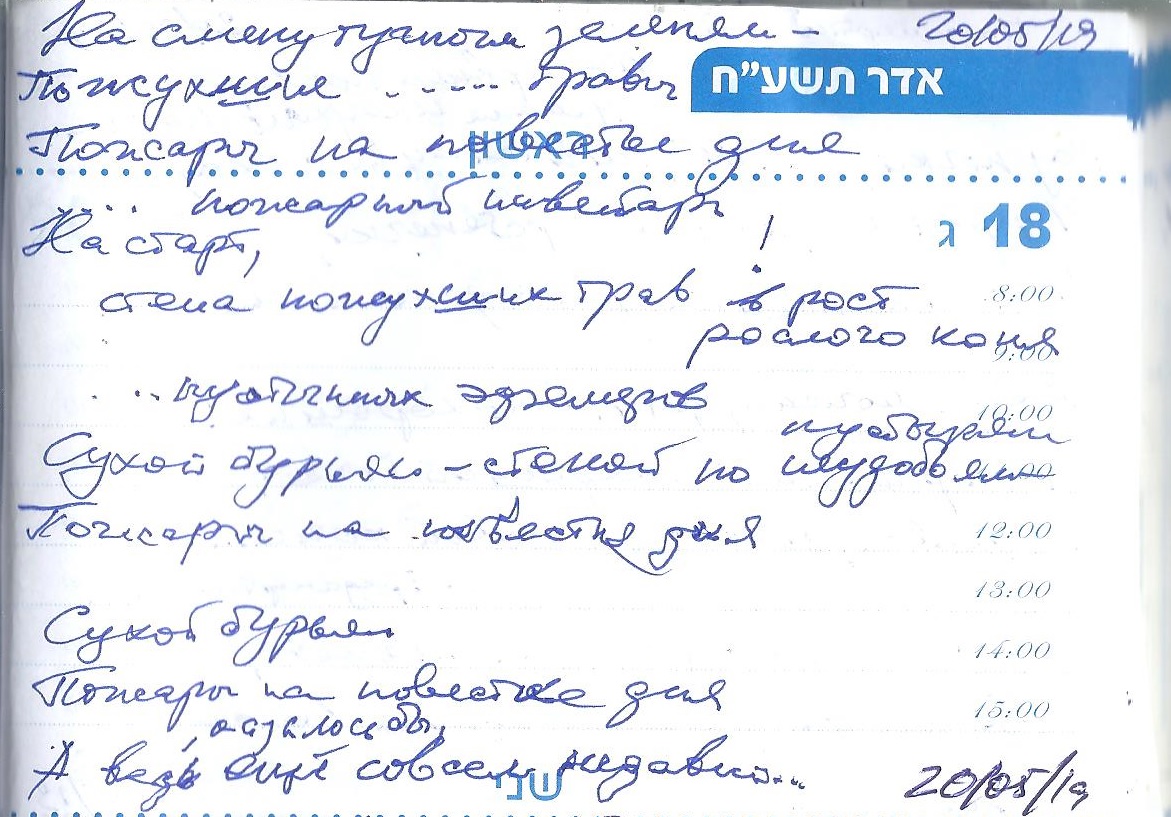 На смену зелени – 20/05/19
Пожухшие ..... травы
אדר תשע"ח
Пожары на повестке дня
ראשון
.... пожарный инвентарь
18 ג
На старт, !
стена пожухших трав в рост 8:00
рослого коня
9:00
10:00
Сухой бурьян – стеной по неудобьям
Пожары на повестке дня 12:00
13:00
Сухой бурьян
14:00
Пожары на повестке дня
15:00
, казалось бы,
А ведь ещё совсем недавно...
שני
20/05/19